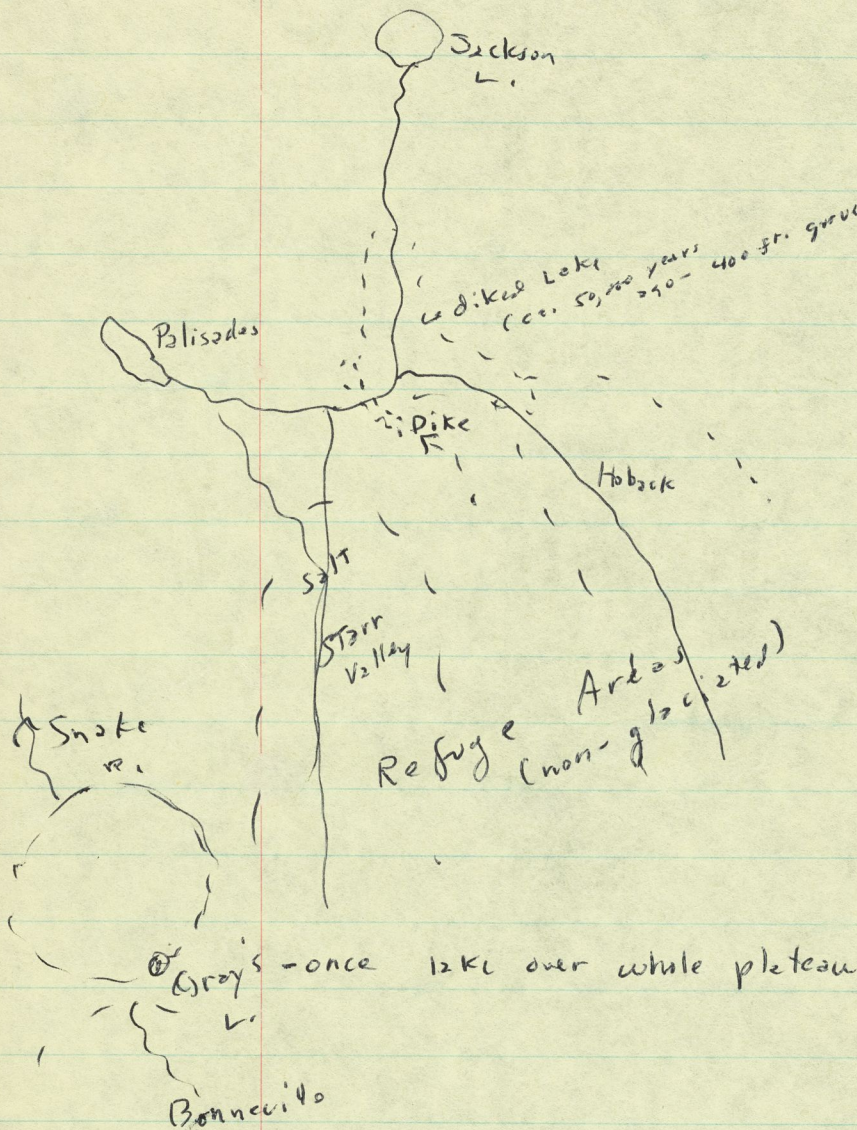 Jackson
L.
Diked Lake
(ca. 50,000 years
250 - 400 ft. grave
Palisades
Dike
Hoback
Salt
Starr
Valley
Refuge Areas
(non-glaciated)
Snake
R.
Gray's - once lake over whole plateau
L.
Bonneville